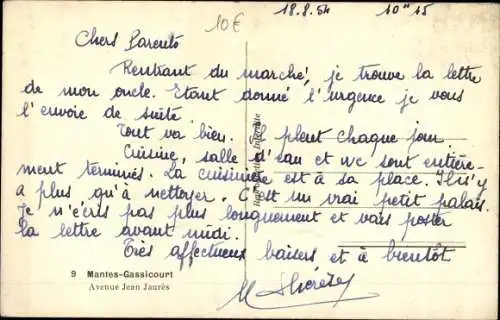 10€
18.8.54 10ʰ15
Chers Parents
Rentrant du marché, je trouve la lettre
de mon oncle. Etant donné l'urgence je vous
l'envoie de suite
Tout va bien. Il pleut chaque jour
Cuisine, salle d'eau et wc sont entière-
ment terminés. La cuisinière est à sa place. Il n'y
a plus qu'à nettoyer. C'est un vrai petit palais.
Je n'écris pas plus longuement et vais poster
la lettre avant midi.
Très affectueux baisers et à bientôt
M Thérèse
Reproduction Interdite
9 Mantes-Gassicourt
Avenue Jean Jaurès